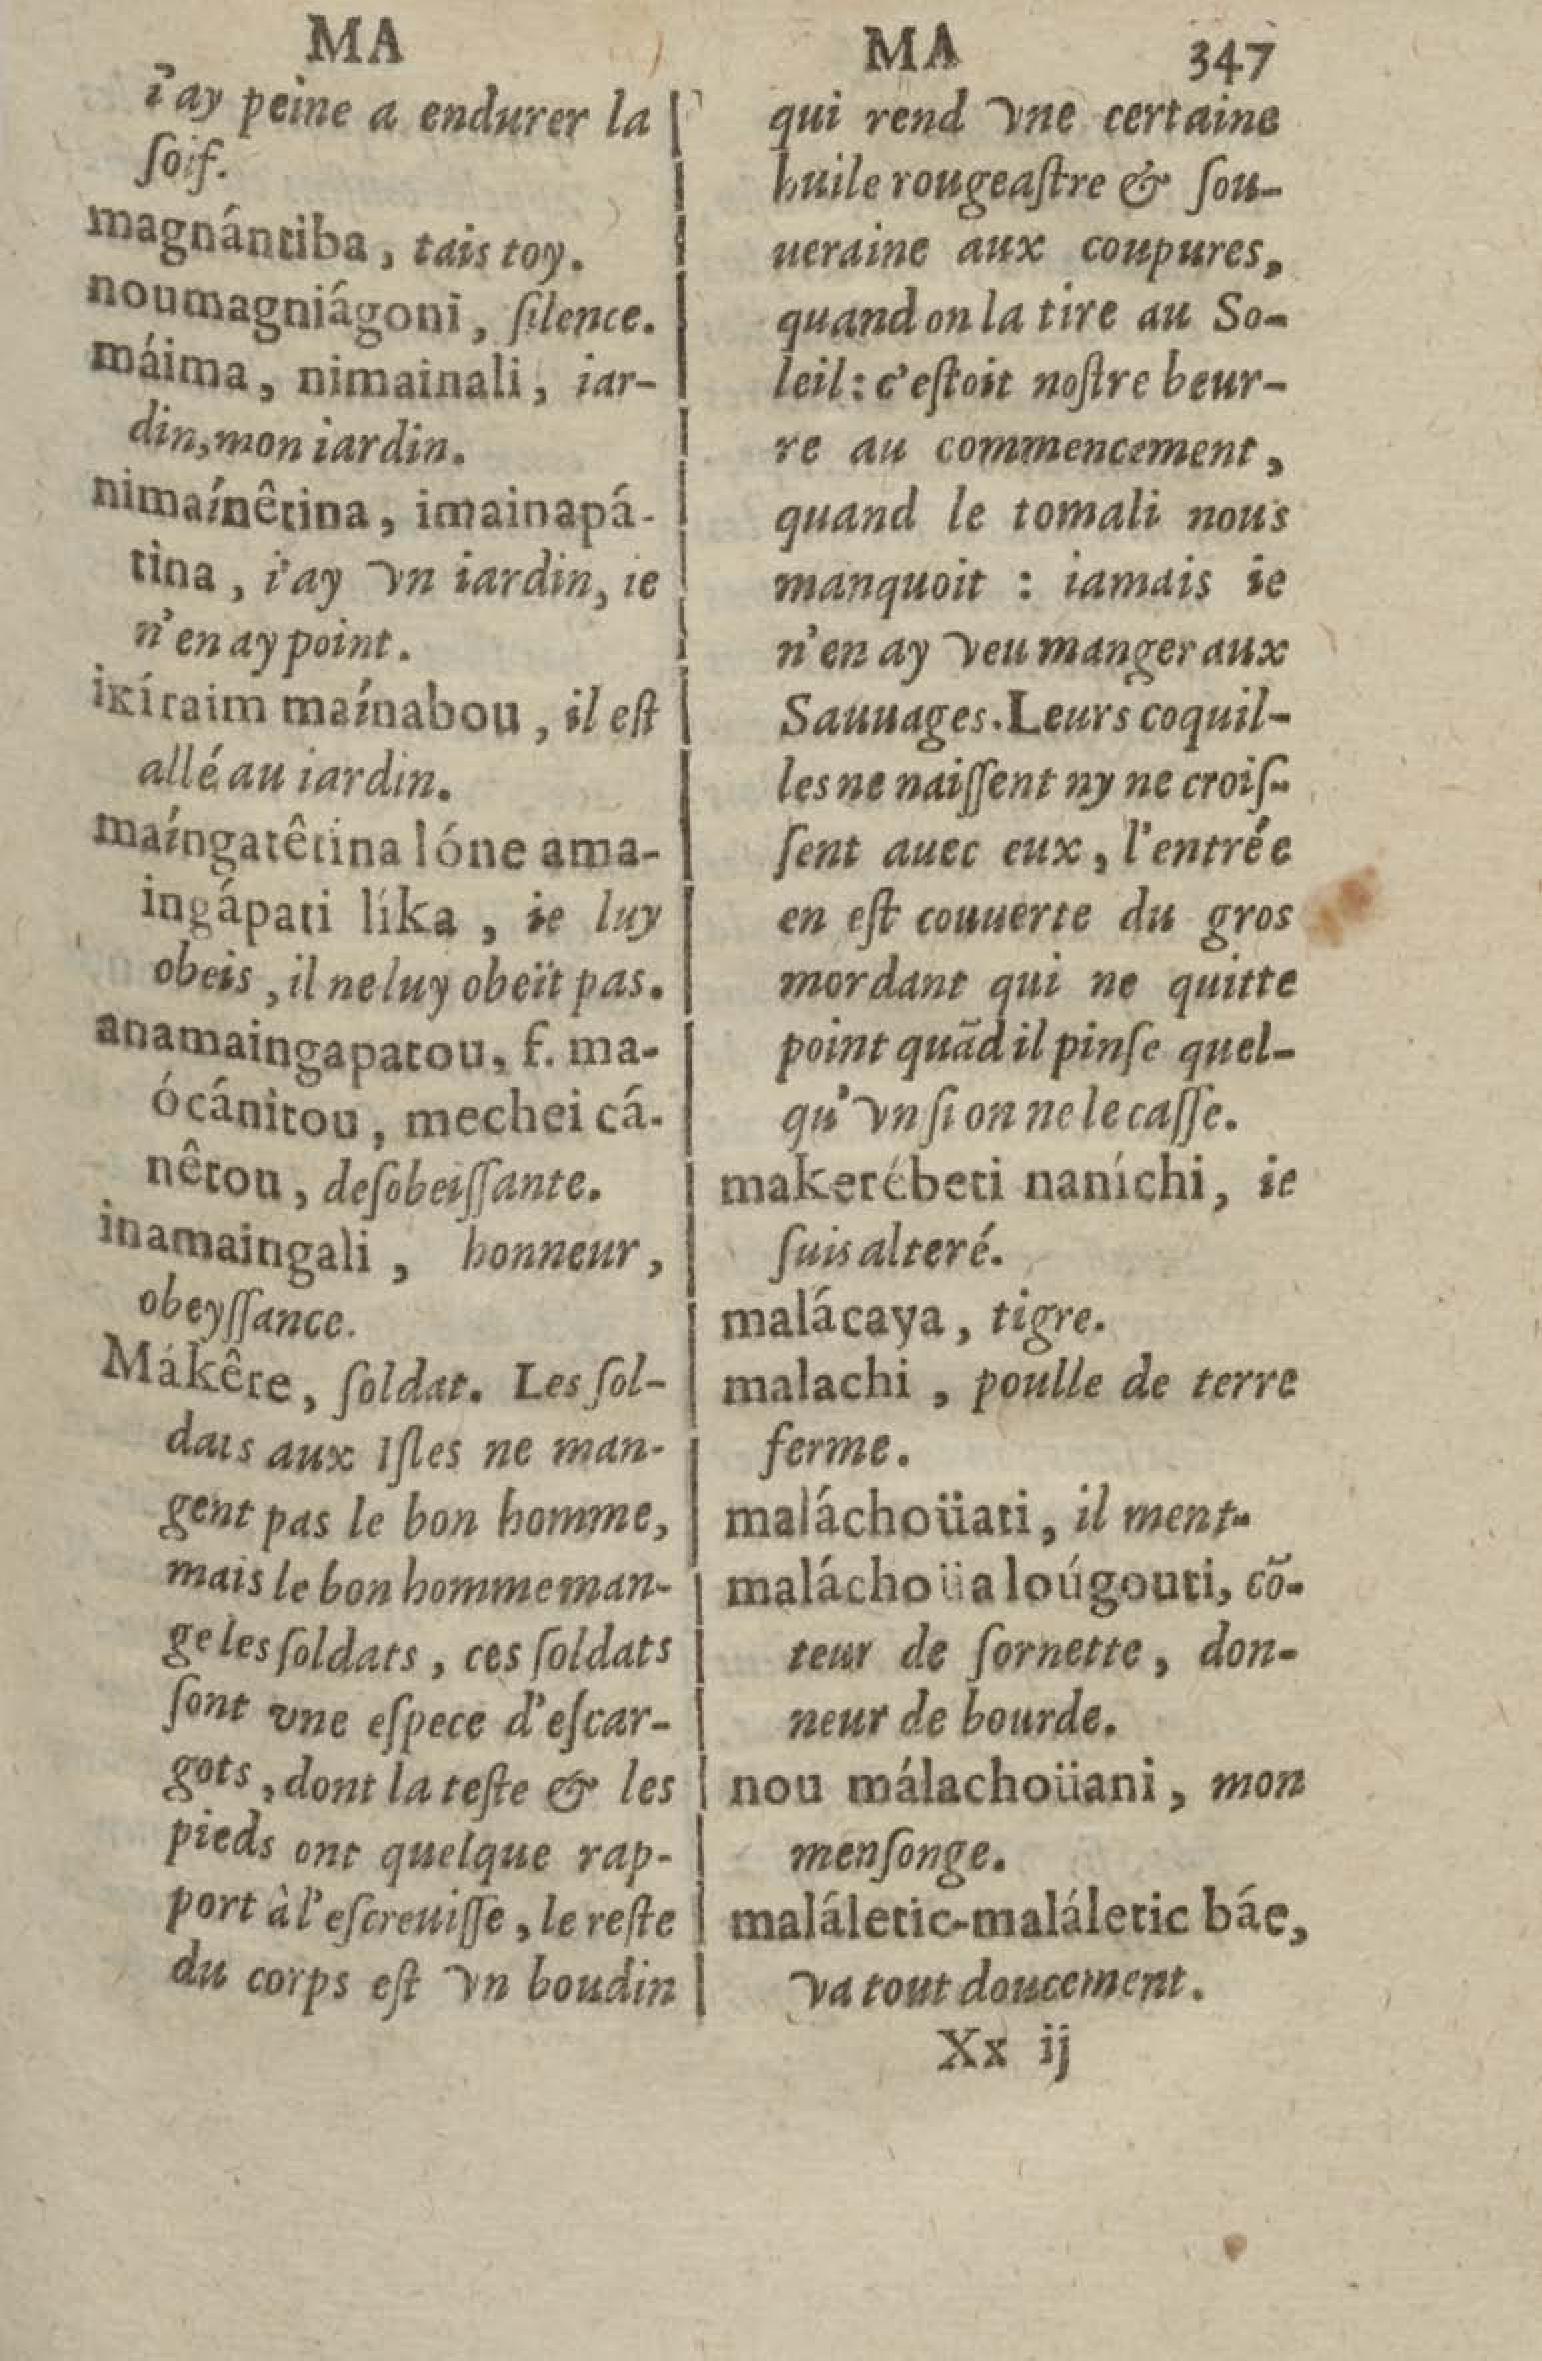 MA
i'ay peine a endurer la
ſoif.
magnántiba, tais toy.
noumagniágoni, ſilence.
máima, nimainali, iar-
din, mon iardin.
nimaínêtina, imainapá-
tina, i'ay vn iardin, ie
n'en ay point.
ikíraim maínabou, il eſt
allé au iardin.
maíngatêtina lóne ama-
ingápati líka, ie luy
obeis, il ne luy obeït pas.
anamaingapatou, f. ma-
ócánitou, mechei cá-
nêtou, deſobeiſſante.
inamaingali, honneur,
obeyſſance.
Mákêre, ſoldat. Les ſol-
dats aux Iſles ne man-
gent pas le bon homme,
mais le bon homme man-
ge les ſoldats, ces ſoldats
ſont vne eſpece d'eſcar-
gots, dont la teſte & les
pieds ont quelque rap-
port à l'eſcreuiſſe, le reſte
du corps eſt vn boudin
MA 347
qui rend vne certaine
huile rougeaſtre & ſou-
ueraine aux coupures,
quand on la tire au So-
leil: c'eſtoit noſtre beur-
re au commencement,
quand le tomali nous
manquoit : iamais ie
n'en ay veu manger aux
Sauuages. Leurs coquil-
les ne naiſſent ny ne croiſ-
ſent auec eux, l'entrée
en eſt couuerte du gros
mordant qui ne quitte
point quãd il pinſe quel-
qu'vn ſi on ne le caſſe.
makerébeti naníchi, ie
ſuis alteré.
malácaya, tigre.
malachi, poulle de terre
ferme.
maláchoüati, il ment.
maláchoüa loúgouti, cõ-
teur de ſornette, don-
neur de bourde.
nou málachoüani, mon
menſonge.
maláletic-maláletic báe,
va tout doucement.
Xx ij